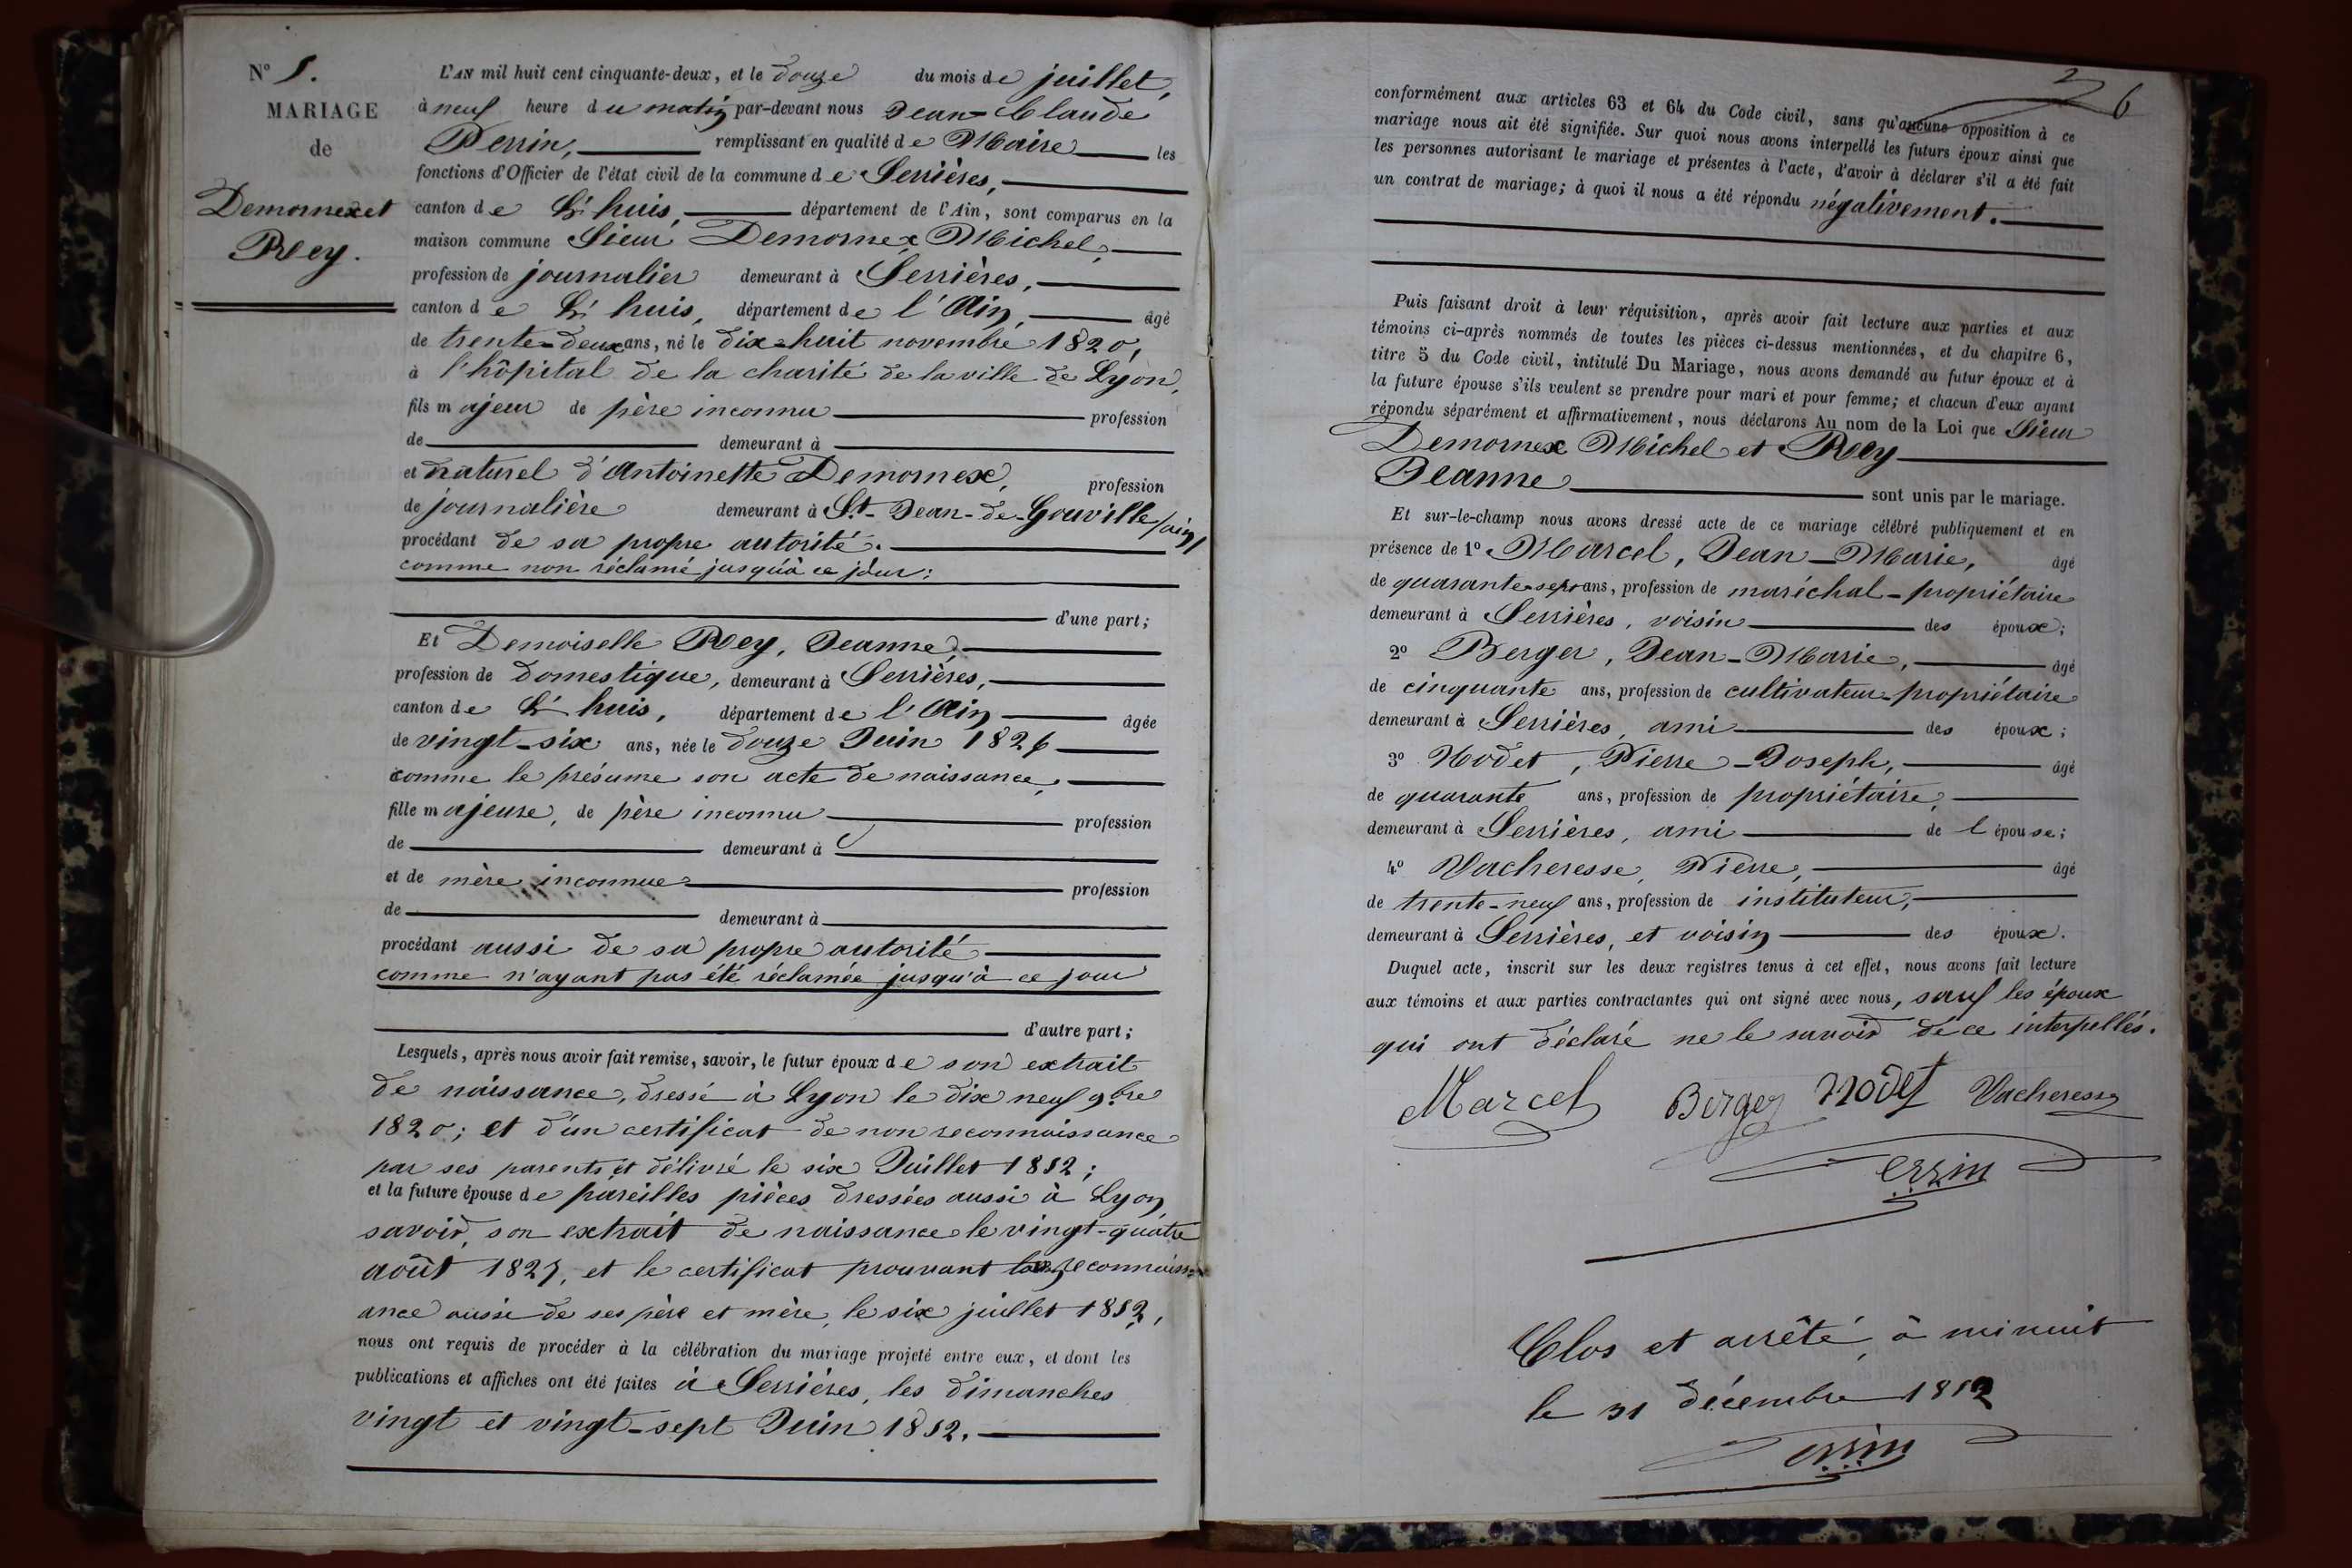 N° 5.
MARIAGE
de
Demornex et
Rey.
L'AN mil huit cent cinquante-deux, et le douze du mois de juillet,
à neuf heure du matin par-devant nous Jean-Claude
Perrin, remplissant en qualité de Maire les
fonctions d'Officier de l'état civil de la commune de Serrières,
canton de L'huis, département de l'Ain, sont comparus en la
maison commune Sieur Demornex Michel,
profession de journalier demeurant à Serrières,
canton de L'huis, département de l'Ain, âgé
de trente-deux ans, né le dix-huit novembre 1820,
à l'hôpital de la charité de la ville de Lyon,
fils majeur de père inconnu profession
de demeurant à
et naturel d'Antoinette Demornex, profession
de journalière demeurant à St-Jean-de-Gouville /ain/
procédant de sa propre autorité.
comme non réclamé jusqu'à ce jour;
d'une part;
Et Demoiselle Rey, Jeanne,
profession de domestique, demeurant à Serrières,
canton de L'huis, département de l'Ain âgée
de vingt-six ans, née le douze Juin 1826
comme le présume son acte de naissance,
fille majeure, de père inconnu profession
de demeurant à
et de mère inconnue profession
de demeurant à
procédant aussi de sa propre autorité
comme n'ayant pas été réclamée jusqu'à ce jour
d'autre part;
Lesquels, après nous avoir fait remise, savoir, le futur époux de son extrait
de naissance, dressé à Lyon le dix neuf 9.bre
1820; et d'un certificat de non reconnaissance
par ses parents et délivré le six Juillet 1852;
et la future épouse de pareilles pièces dressées aussi à Lyon,
savoir, son extrait de naissance le vingt-quatre
août 1827, et le certificat prouvant reconnaiss-
ance aussi de ses père et mère, le six juillet 1852,
nous ont requis de procéder à la célébration du mariage projeté entre eux, et dont les
publications et affiches ont été faites à Serrières, les dimanches
vingt et vingt-sept Juin 1852.
6
conformément aux articles 63 et 64 du Code civil, sans qu'aucune opposition à ce
mariage nous ait été signifiée. Sur quoi nous avons interpellé les futurs époux ainsi que
les personnes autorisant le mariage et présentes à l'acte, d'avoir à déclarer s'il a été fait
un contrat de mariage; à quoi il nous a été répondu négativement.
Puis faisant droit à leur réquisition, après avoir fait lecture aux parties et aux
témoins ci-après nommés de toutes les pièces ci-dessus mentionnées, et du chapitre 6,
titre 5 du Code civil, intitulé Du Mariage, nous avons demandé au futur époux et à
la future épouse s'ils veulent se prendre pour mari et pour femme; et chacun d'eux ayant
répondu séparément et affirmativement, nous déclarons Au nom de la Loi que Sieur
Demornex Michel et Rey
Jeanne sont unis par le mariage.
Et sur-le-champ nous avons dressé acte de ce mariage célébré publiquement et en
présence de 1° Marcel, Jean-Marie, âgé
de quarante-sept ans, profession de maréchal-propriétaire
demeurant à Serrières, voisin des époux;
2° Berger, Jean-Marie, âgé
de cinquante ans, profession de cultivateur-propriétaire
demeurant à Serrières, ami des époux;
3° Nodet, Pierre-Joseph, âgé
de quarante ans, profession de propriétaire,
demeurant à Serrières, ami de l'épouse;
4° Vacheresse, Pierre, âgé
de trente-neuf ans, profession de instituteur,
demeurant à Serrières, et voisin des époux.
Duquel acte, inscrit sur les deux registres tenus à cet effet, nous avons fait lecture
aux témoins et aux parties contractantes qui ont signé avec nous, sauf les époux
qui ont déclaré ne le savoir de ce interpellés.
Marcel Berger Nodet Vacheresse
Perrin
Clos et arrêté, à minuit
le 31 décembre 1852
Perrin